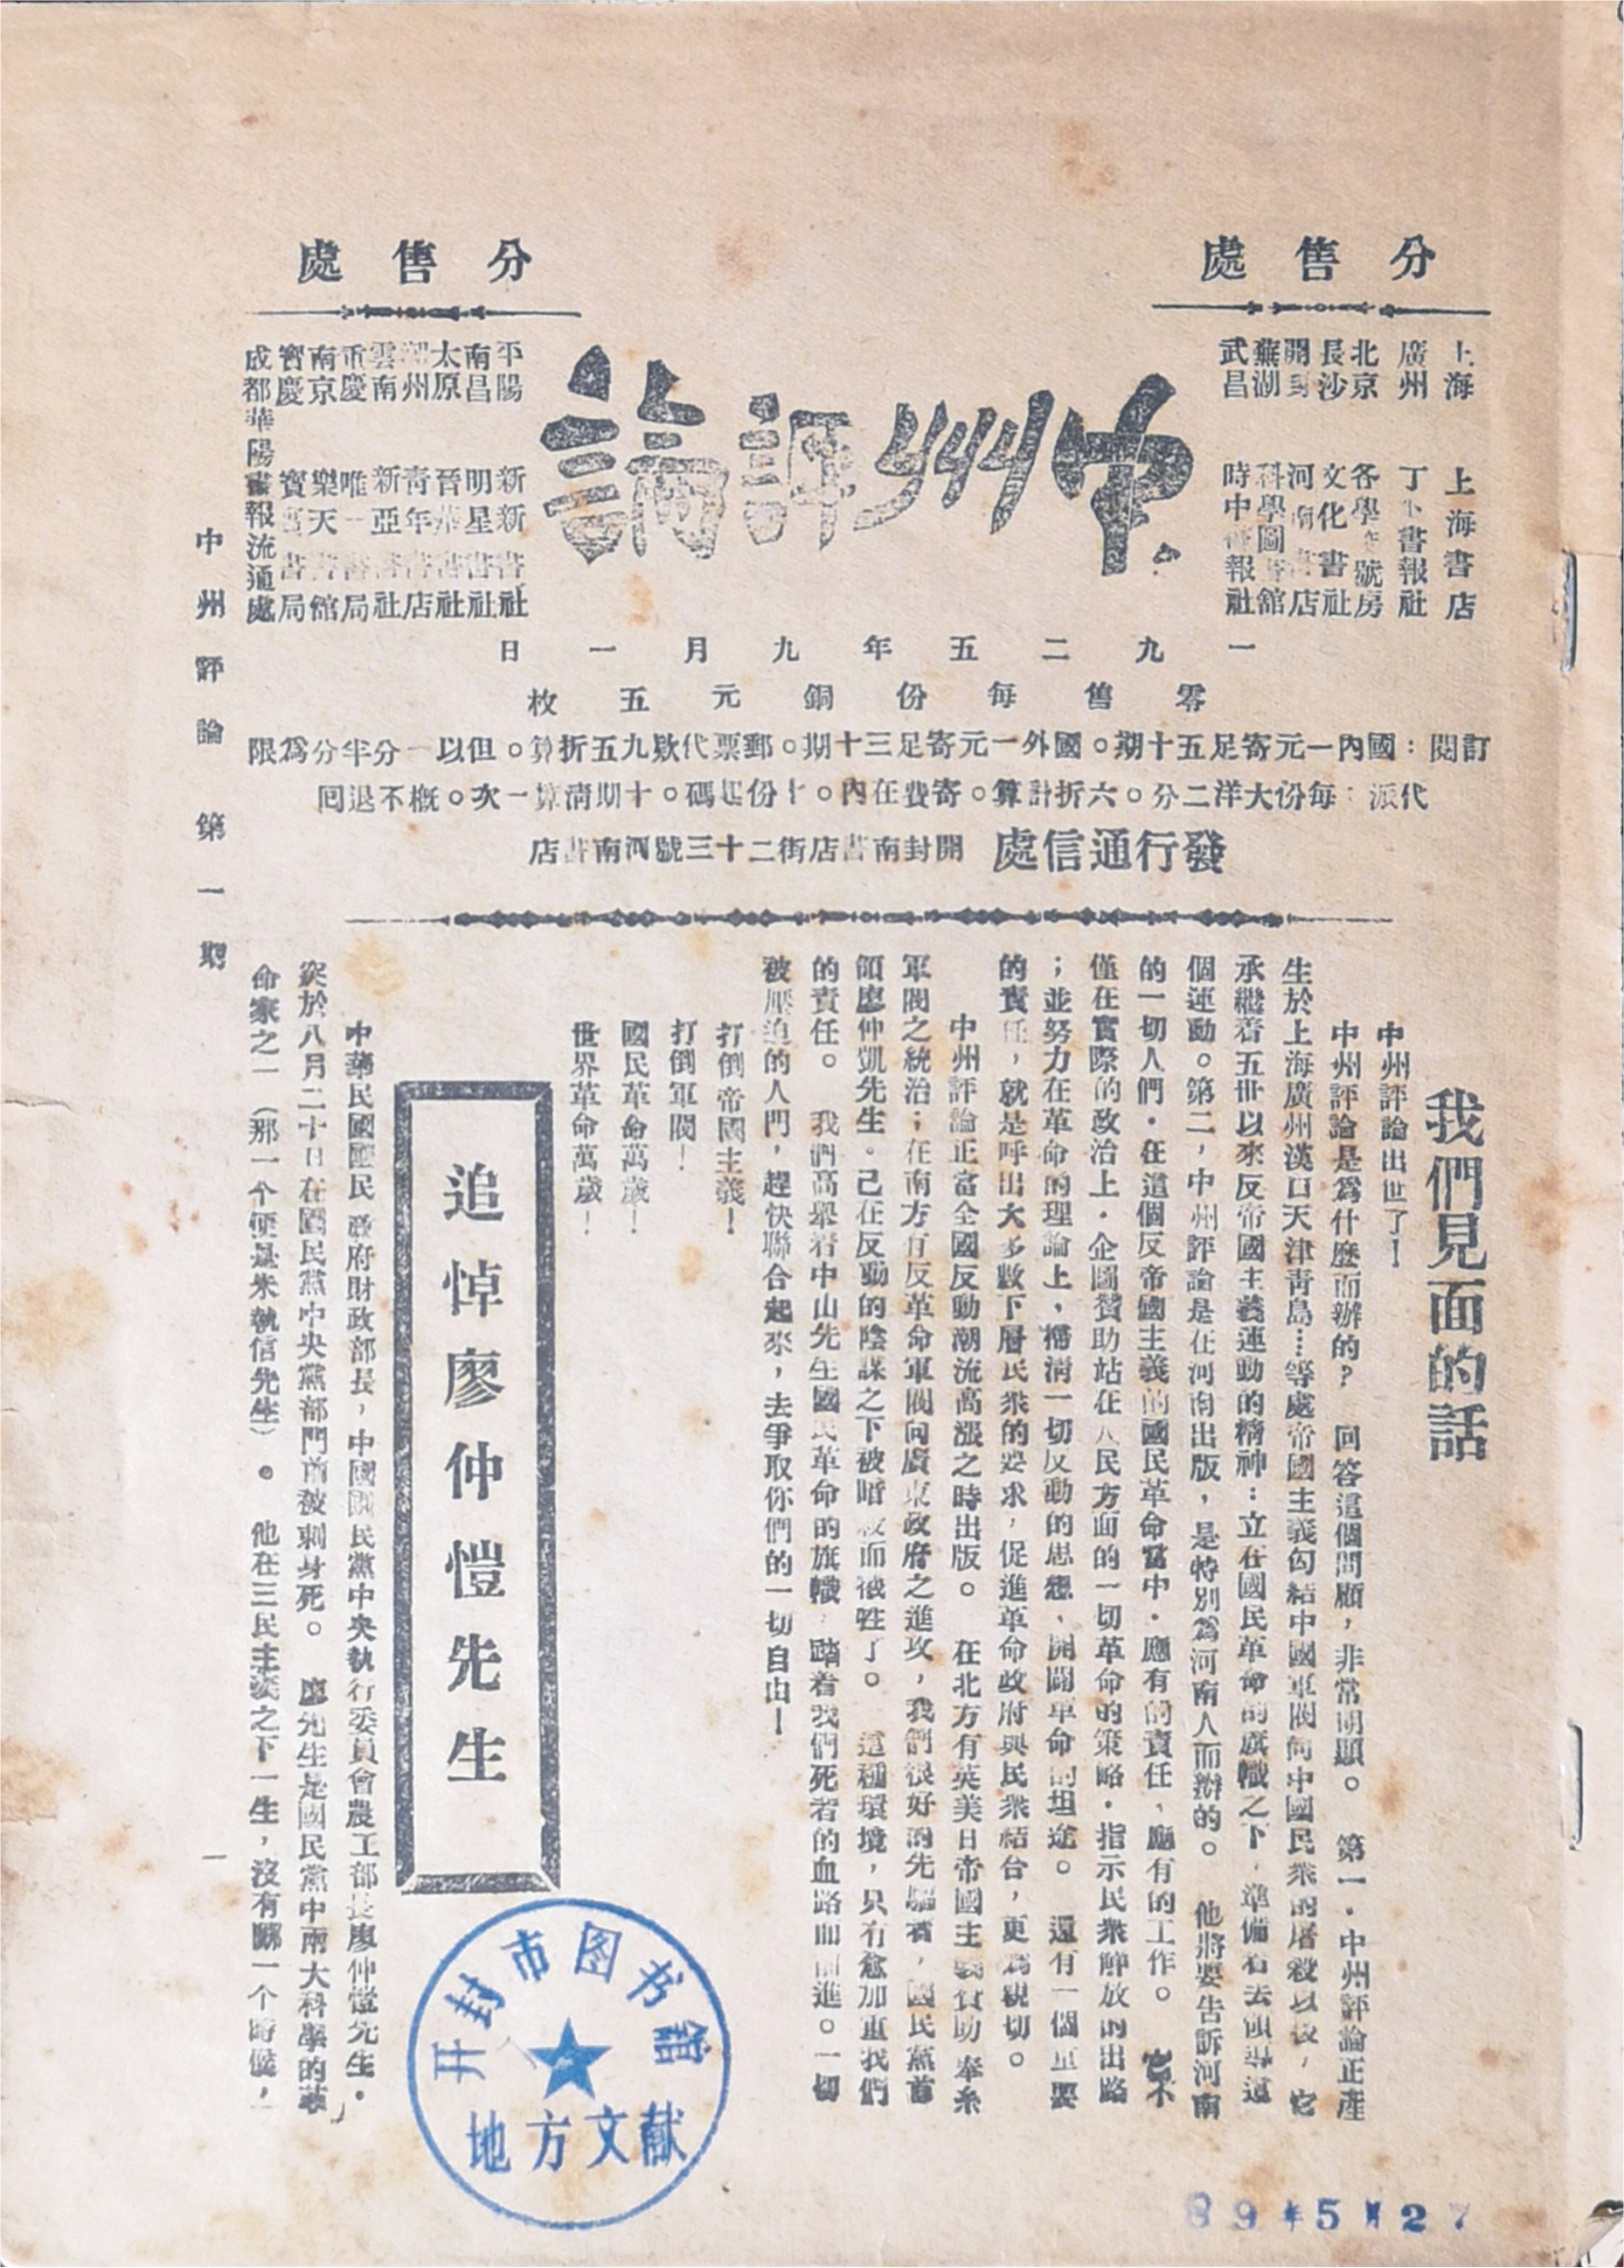 分售處
上海 上海書店
廣州 丁卜書報社
北京 各學校號房
長沙 文化書社
開封 河南書店
蕪湖 科學圖書館
武昌 時中書報社
中州評論
分售處
平陽 新新書社
南昌 明星書社
太原 晉華書社
州 青年書店
雲南 新亞書社
重慶 唯一書局
南京 樂天書館
寶慶 寶慶書局
成都華陽書報流通處
一九二五年九月一日
零售每份銅元五枚
訂閱：國內一元寄足五十期。國外一元寄足三十期。郵票代欵九五折算。但以一分半分為限
代派：每份大洋二分。六折計算。寄費在內。十份起碼。十期清算一次。概不退回
發行通信處 開封南書店街二十三號河南書店
我們見面的話
中州評論出世了！
中州評論是為什麼而辦的？ 回答這個問題，非常明顯。 第一．中州評論正產
生於上海廣州漢口天津青島……等處帝國主義勾結中國軍閥向中國民衆的屠殺以後，它
承繼着五卅以來反帝國主義運動的精神：立在國民革命的旗幟之下，準備着去領導這
個運動。第二，中州評論是在河南出版，是特別為河南人而辦的。 他將要告訴河南
的一切人們．在這個反帝國主義的國民革命當中．應有的責任、應有的工作。 它不
僅在實際的政治上．企圖贊助站在人民方面的一切革命的策略．指示民衆解放的出路
；並努力在革命的理論上，掃清一切反動的思想、開闢革命的坦途。 還有一個重要
的責任，就是呼出大多數下層民衆的要求，促進革命政府與民衆結合，更為親切。
中州評論正當全國反動潮流高漲之時出版。 在北方有英美日帝國主義資助奉系
軍閥之統治；在南方有反革命軍閥向廣東政府之進攻，我們很好的先驅者，國民黨首
領廖仲凱先生．已在反動的陰謀之下被暗殺而犧牲了。 這種環境，只有愈加重我們
的責任。 我們高舉着中山先生國民革命的旗幟，踏着我們死者的血路而前進。一切
被壓迫的人門，趕快聯合起來，去爭取你們的一切自由！
打倒帝國主義！
打倒軍閥！
國民革命萬歲！
世界革命萬歲！
追悼廖仲愷先生
中華民國國民政府財政部長，中國國民黨中央執行委員會農工部長廖仲愷先生．
突於八月二十日在國民黨中央黨部門前被刺身死。 廖先生是國民黨中兩大科學的革
命家之一（那一个便是朱執信先生）。 他在三民主義之下一生，沒有關一个時候，
中州評論 第一期
一
开封市图书馆
地方文献
89年5月27